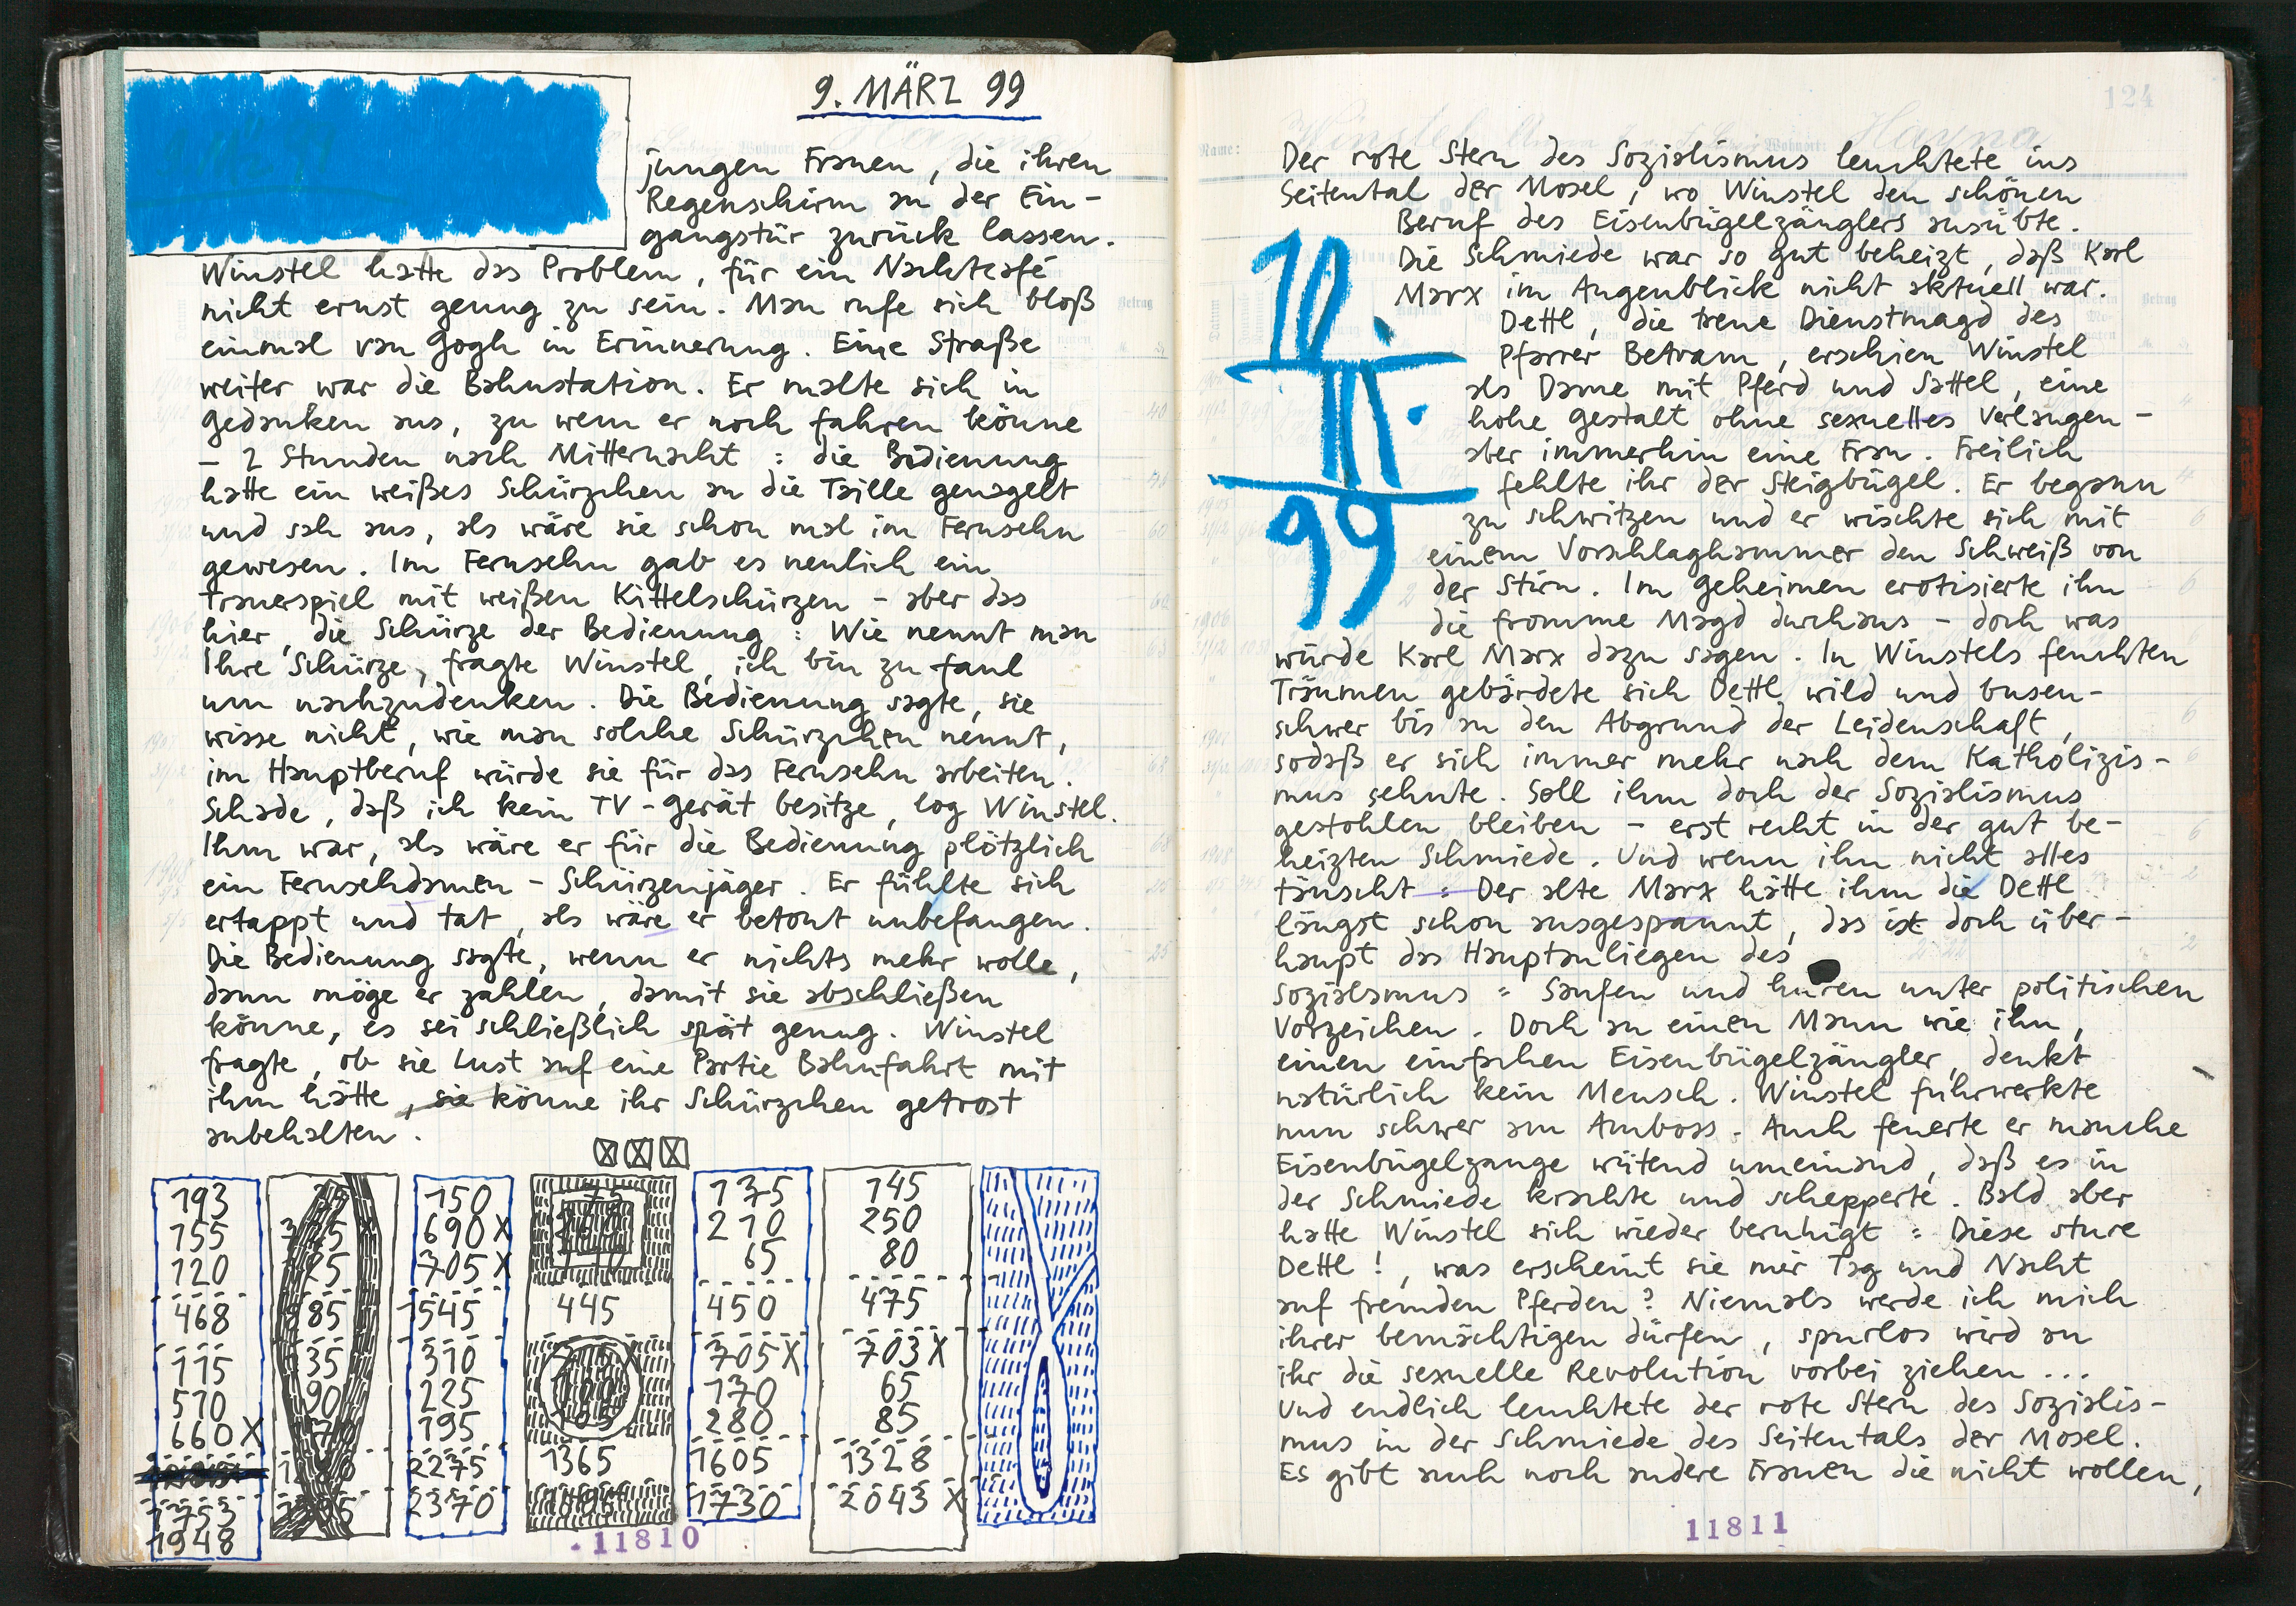 9. MÄRZ 99
jungen Frauen, die ihren
Regenschirm an der Ein-
gangstür zurück lassen.
Winstel hatte das Problem, für ein Nachtcafé
nicht ernst genug zu sein. Man rufe sich bloß
einmal van Gogh in Erinnerung. Eine Straße
weiter war die Bahnstation. Er malte sich in
Gedanken aus, zu wem er noch fahren könne
– 2 Stunden nach Mitternacht : die Bedienung
hatte ein weißes Schürzchen an die Taille genagelt
und sah aus, als wäre sie schon mal im Fernsehn
gewesen. Im Fernsehn gab es neulich ein
Trauerspiel mit weißen Kittelschürzen – aber das
hier, die Schürze der Bedienung : Wie nennt man
Ihre Schürze, fragte Winstel, ich bin zu faul
um nachzudenken. Die Bedienung sagte, sie
wisse nicht, wie man solche Schürzchen nennt,
im Hauptberuf würde sie für das Fernsehn arbeiten.
Schade, daß ich kein TV-Gerät besitze, log Winstel.
Ihm war, als wäre er für die Bedienung plötzlich
ein Fernsehdamen-Schürzenjäger. Er fühlte sich
ertappt und tat, als wäre er betont unbefangen.
Die Bedienung sagte, wenn er nichts mehr wolle,
dann möge er zahlen, damit sie abschließen
könne, es sei schließlich spät genug. Winstel
fragte, ob sie Lust auf eine Partie Bahnfahrt mit
ihm hätte, sie könne ihr Schürzchen getrost
anbehalten.
193
155
120
468
115
510
660 X
1753
1948
150
690 X
705 X
1545
310
225
195
2275
2370
445
1365
135
210
65
450
705 X
170
280
1605
1730
145
250
80
475
703 X
65
85
1328
2043 X
11810
124
Name:
Winstel
Wohnort:
Hayna
Der rote Stern des Sozialismus leuchtete ins
Seitental der Mosel, wo Winstel den schönen
Beruf des Eisenbügelzänglers ausübte.
Die Schmiede war so gut beheizt, daß Karl
Marx im Augenblick nicht aktuell war.
Dettl, die treue Dienstmagd des
Pfarrer Betram, erschien Winstel
als Dame mit Pferd und Sattel, eine
hohe Gestalt ohne sexuelles Verlangen –
aber immerhin eine Frau. Freilich
fehlte ihr der Steigbügel. Er begann
zu schwitzen und er wischte sich mit
einem Vorschlaghammer den Schweiß von
der Stirn. Im Geheimen erotisierte ihn
die fromme Magd durchaus – doch was
würde Karl Marx dazu sagen. In Winstels feuchten
Träumen gebärdete sich Dettl wild und busen-
schwer bis an den Abgrund der Leidenschaft,
sodaß er sich immer mehr nach dem Katholizis-
mus sehnte. Soll ihm doch der Sozialismus
gestohlen bleiben – erst recht in der gut be-
heizten Schmiede. Und wenn ihn nicht alles
täuscht : Der alte Marx hätte ihm die Dettl
längst schon ausgespannt, das ist doch über-
haupt das Hauptanliegen des
Sozialsmus : Saufen und huren unter politischen
Vorzeichen. Doch an einen Mann wie ihn,
einen einfachen Eisenbügelzängler, denkt
natürlich kein Mensch. Winstel fuhrwerkte
nun schwer am Amboss. Auch feuerte er manche
Eisenbügelzange wütend umeinand, daß es in
der Schmiede krachte und schepperte. Bald aber
hatte Winstel sich wieder beruhigt : Diese sture
Dettl!, was erscheint sie mir Tag und Nacht
auf fremden Pferden? Niemals werde ich mich
ihrer bemächtigen dürfen, spurlos wird an
ihr die sexuelle Revolution vorbei ziehen ...
Und endlich leuchtete der rote Stern des Sozialis-
mus in der Schmiede des Seitentals der Mosel.
Es gibt auch noch andere Frauen die nicht wollen,
10.
III.
99
11811